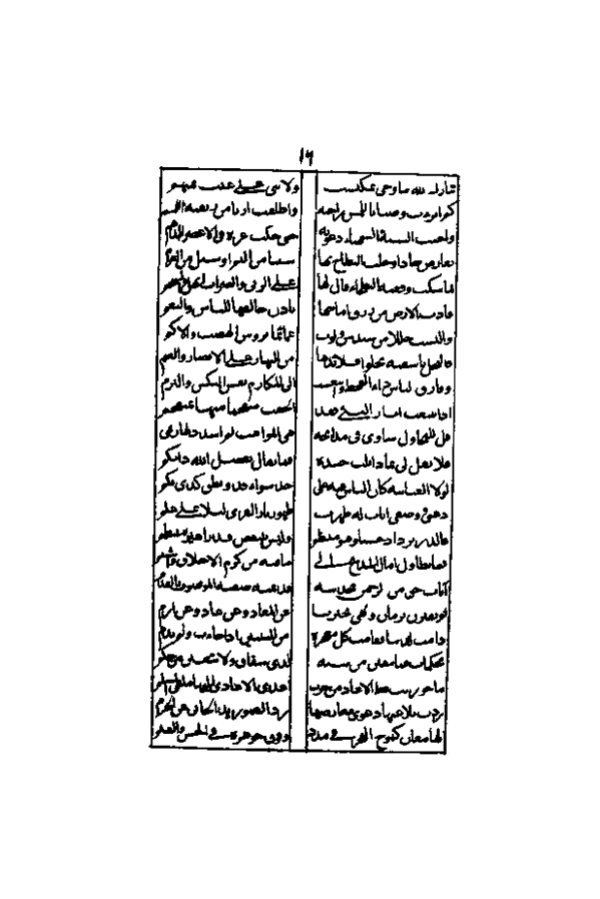 ١٦
تبارك الله ما وحي بمكتسب ولا نبي على غيب بمتهم
كم ابرءت وصبا باللمس راحته واطلقت اربا من ربقة اللمم
واحيت السنة الشهباء دعوته حتى حكت غرة في الاعصر الدهم
بعارض جاد او خلت البطاح بها سيبا من اليم او سيل من العرم
لما شكت وقعه البطحاء قال لها على الربى والهضاب انهل وانسجم
فادت الارض من رزق امانتها باذن خالقها للناس والنعم
والبست حللا من سندس ولوت عمائما برؤس الهضب والاكم
فالنخل باسقة تجلو قلائدها من البهار على الابصار والعنم
وفارق الناس داء القحط وانبعثت الى المكارم نفس النكس والبرم
اذا تتبعت اثار النبي فقد الحقت منفخما منها بمنفخم
قل للمحاول شاوى في مدائحه هي المواهب لم اشدد لها زيمي
فلا تقل لي بماذا نلت جيدها فما يقال لفضل الله ذا بكم
لولا العناية كان الناس فيه على حد سواء فذو نطق كذي بكم
دعني ووصفي ايات له ظهرت ظهور نار القرى ليلا على علم
فالدر يزداد حسنا وهو منتظم وليس ينقص قدرا غير منتظم
فما تطاول امال المديح الى ما فيه من كرم الاخلاق والشيم
ايات حق من الرحمن محدثة قديمة صفة الموصوف بالقدم
لم تقترن بزمان وهي تخبرنا عن المعاد وعن عاد وعن ارم
دامت لدينا ففاقت كل معجزة من النبيين اذ جاءت ولم تدم
محكمات فما تبقين من شبه لذي شقاق ولا تبغين من حكم
ما حوربت قط الا عاد من حرب اعدى الاعادي اليها ملقي السلم
ردت بلاغتها دعوى معارضها رد الغيور يد الجاني عن الحرم
لها معان كموج البحر في مدد وفوق جوهره في الحسن والقيم